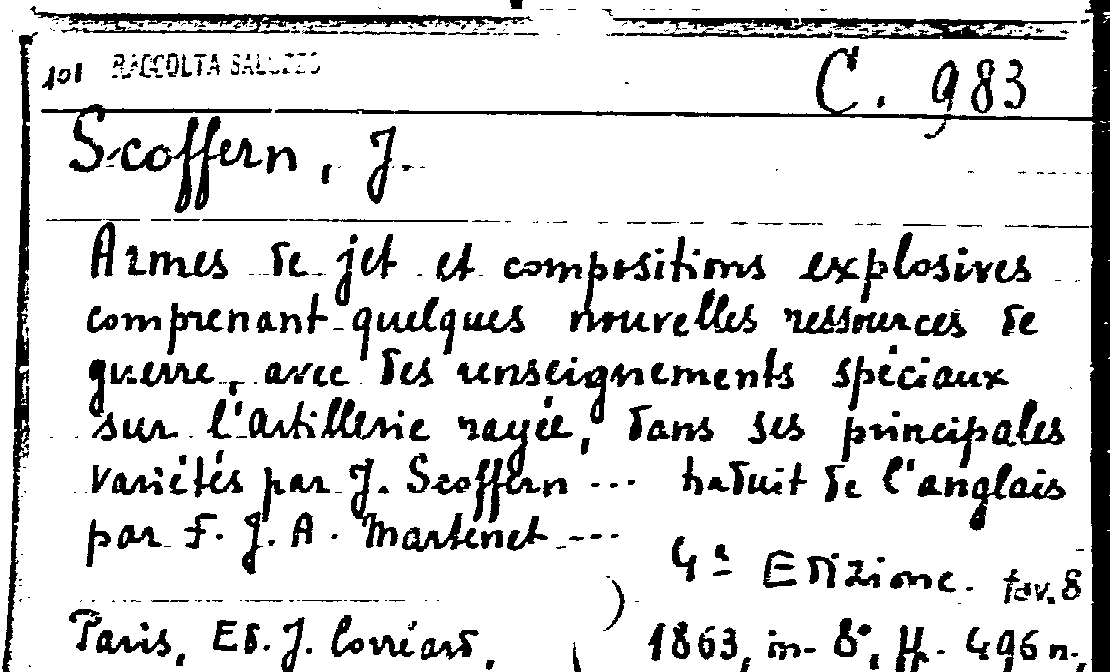 101 RACCOLTA SALUZZO C. 983
Scoffern, J.
Armes de jet et compositions explosives
comprenant quelques nouvelles ressources de
guerre, avec des renseignements spéciaux
sur l'artillerie rayée, dans ses principales
variétés par J. Scoffern ... traduit de l'anglais
par F. J. A. Martenet ...
4ª Edizione. tav. 8
Paris, Ed. J. Corréard, 1863, in-8°, pp. 496 n.